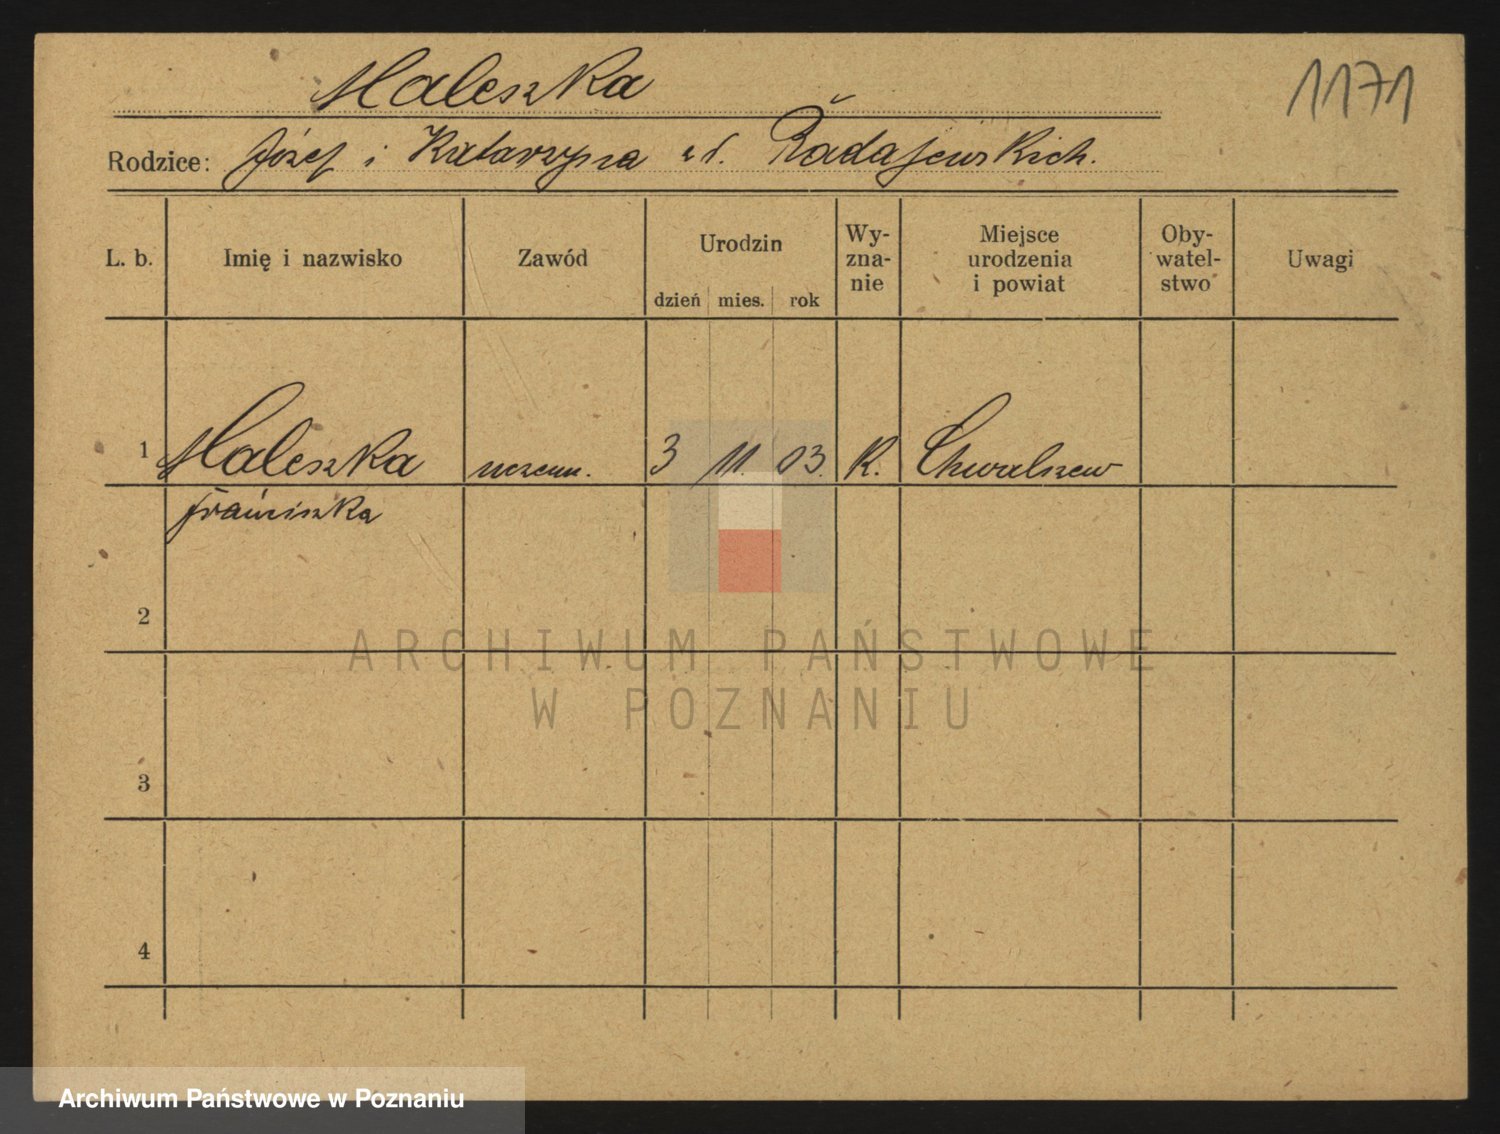 Maleszka
1171
Rodzice: Józef i Katarzyna z d. Radajewskich.
L. b.
Imię i nazwisko
Zawód
Urodzin
dzień mies. rok
Wy-
zna-
nie
Miejsce
urodzenia
i powiat
Oby-
watel-
stwo
Uwagi
1 Maleszka uczenn. 3 11. 03. K. Chwalszew
Franciszka
2
ARCHIWUM PAŃSTWOWE
W POZNANIU
3
4
Archiwum Państwowe w Poznaniu